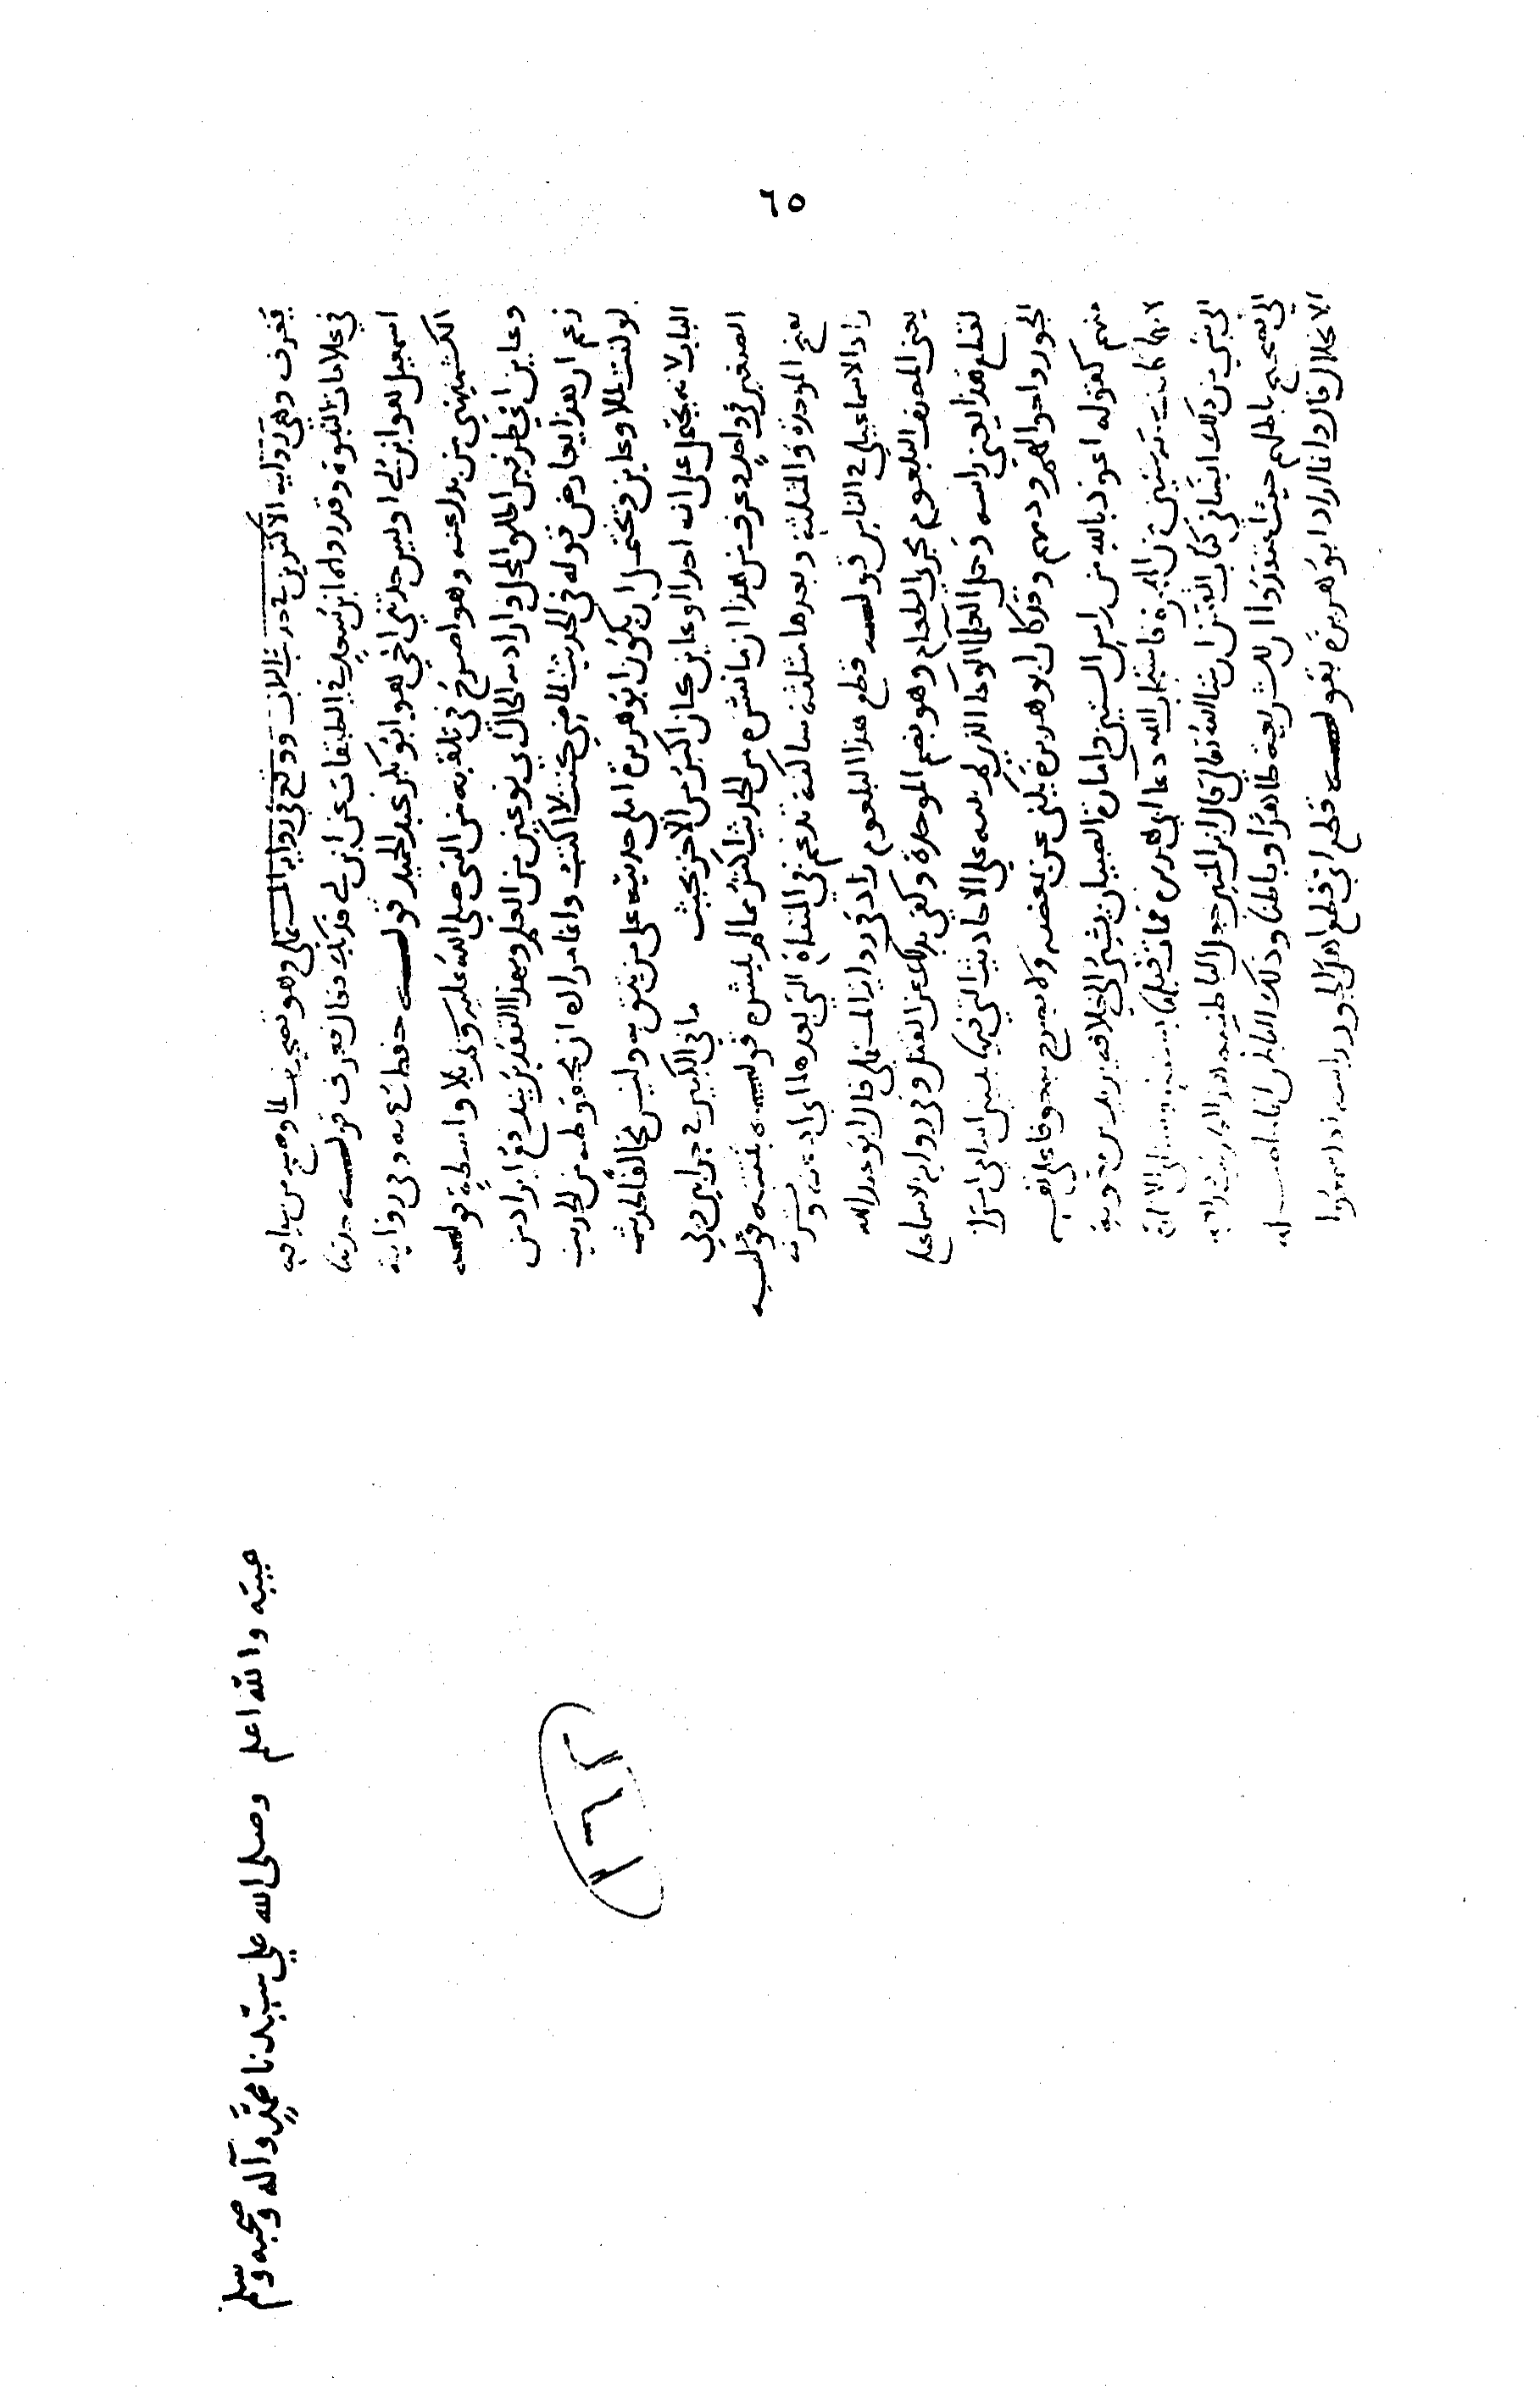 ٦٥
فيغرف وهي رواية الاكثرين في حديث الباب ووقع في رواية المستملي وهو تصحيف لما وضح من سياقه
في علامات النبوة وقد رواه ابن سعد في الطبقات عن ابن ابي فديك فقال فغرف قوله حدثنا
اسمعيل هو ابن ابي اويس حدثني اخي هو ابو بكر عبد الحميد قوله حفظت عن وفي رواية
الكشميهني من بدل عن وهو اصرح في تلقيه من النبي صلى الله عليه وسلم بلا واسطة قوله
وعاين اي ظرفين اطلق المحل واراد به الحال اي نوعين من العلم وبهذا التقدير يندفع ايراد من
زعم ان هذا يعارض قوله في الحديث الماضي كنت لا اكتب وانما مراده ان محفوظه من الحديث
لو كتب لملا وعاين ويحتمل ان يكون ابو هريرة املى حديثه على من يثق به وليس مخالفا لحديث
الباب لانه يحتمل على ان احد الوعاين كان اكبر من الاخر بحيث ما في الكبير في جرابين وفي
الصغير في واحد وعرف من هذا ان ما نشره من الحديث اكثر مما لم ينشره قوله بثثته قوله
بفتح الموحدة والمثلثة وبعدها مثلثة ساكنة تدغم في المثناة التي بعدها اي اذعته ونشرته
زاد الاسماعيلي في الناس قوله قطع هذا البلعوم زاد في رواية المستملي قال ابو عبد الله
يعني المصنف البلعوم مجرى الطعام وهو بضم الموحدة وكنى بذلك عن القتل وفي رواية الاسماعيلي
لقطع هذا يعني راسه وحمل العلما الوعا الذي لم يبثه على الاحاديث التي فيها تبيين اسامي امرا
الجور واحوالهم وذمهم وقد كان ابو هريرة يكنى عن بعضه ولا يصرح به خوفا على نفسه
منهم كقوله اعوذ بالله من راس الستين وامارة الصبيان يشير الى خلافة يزيد بن معوية
لانها كانت سنة ستين من الهجرة فاستجاب الله دعا ابي هريرة فمات قبلها بسنة وستاتي الاشارة
الى شي من ذلك ايضا في كتاب الفتن ان شا الله تعالى قال ابن المنير جعل الباطنية هذا الحديث ذريعة
الى تصحيح باطلهم حيث اعتقدوا ان للشريعة ظاهرا وباطنا وذلك الباطن انما حاصله
الانحلال قال وانما اراد ابو هريرة بقوله قطع اي قطع اهل الجور راسه اذا سمعوا
عيبه والله اعلم وصلى الله علي سيّدنا محمَّدٍ وآله وصحبه وسلّم
١٦٢